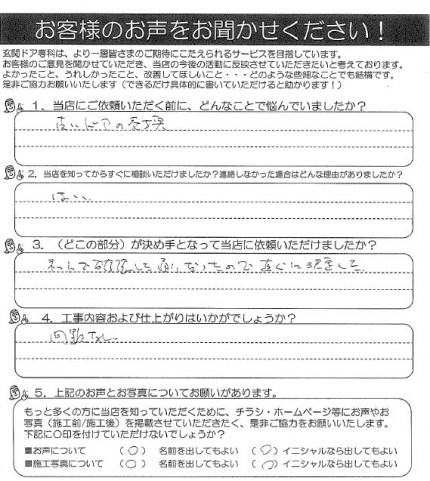 お客様のお声をお聞かせください！
玄関ドア専科は、より一層皆さまのご期待にこたえられるサービスを目指しています。
お客様のご意見を聞かせていただき、当店の今後の活動に反映させていただきたいと考えております。
よかったこと、うれしかったこと、改善してほしいこと・・・どのような些細なことでも結構です。
是非ご協力お願いいたします（できるだけ具体的に書いていただけると助かります！）
1．当店にご依頼いただく前に、どんなことで悩んでいましたか？
古いドアの交換
2．当店を知ってからすぐに相談いただけましたか？連絡しなかった場合はどんな理由がありましたか？
はい
3．（どこの部分）が決め手となって当店に依頼いただけましたか？
ネットで確認した通りだったのですぐに決定した
4．工事内容および仕上がりはいかがでしょうか？
問題なし
5．上記のお声とお写真についてお願いがあります。
もっと多くの方に当店を知っていただくために、チラシ・ホームページ等にお声やお
写真（施工前/施工後）を掲載させていただきたく、是非ご協力をお願いいたします。
下記に○印を付けていただけないでしょうか？
■お声について （○） 名前を出してもよい （○）イニシャルなら出してもよい
■施工写真について （○） 名前を出してもよい （○）イニシャルなら出してもよい